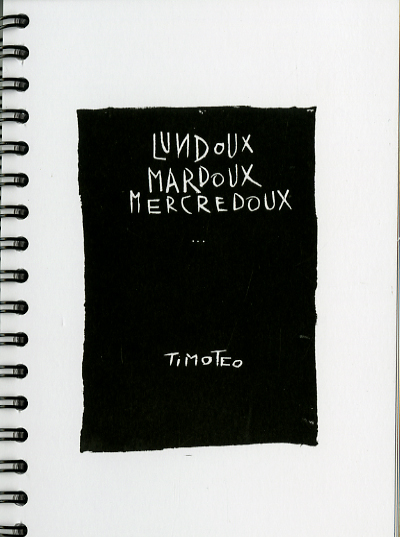 LUNDOUX
MARDOUX
MERCREDOUX
...
TIMOTEO